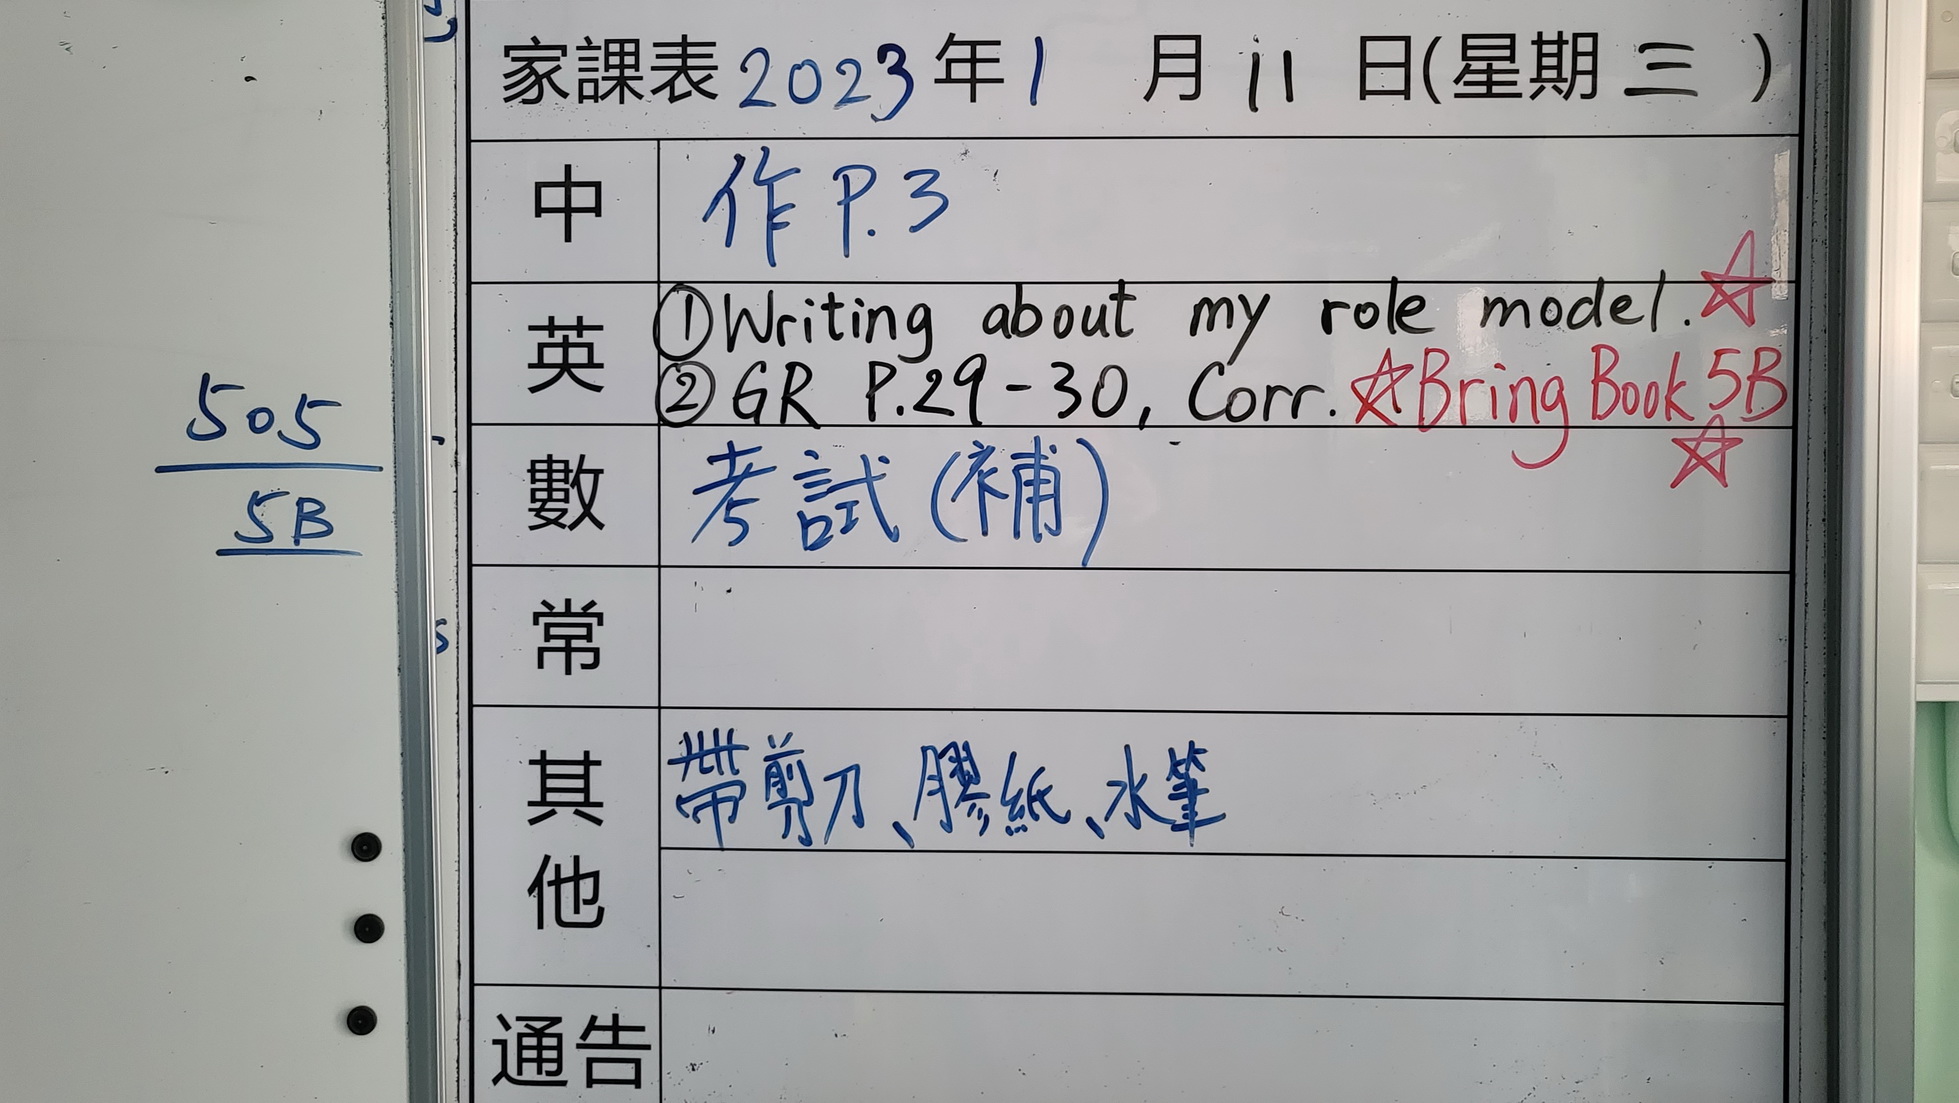 家課表 2023年1月11日(星期三)
中 作 P.3
英 ①Writing about my role model.☆
②GR P.29-30, Corr. ☆Bring Book 5B
☆
數 考試(補)
常
其他 帶剪刀、膠紙、水筆
通告
505
5B